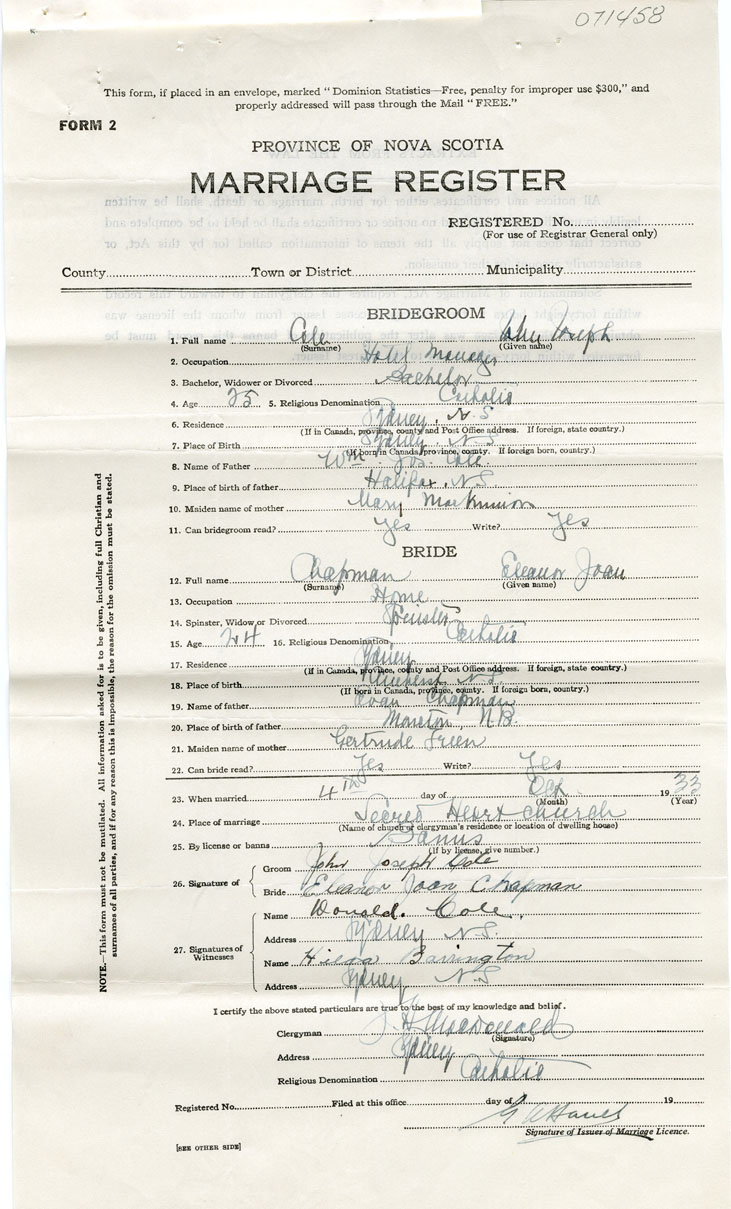 071458
This form, if placed in an envelope, marked "Dominion Statistics—Free, penalty for improper use $300," and
properly addressed will pass through the Mail "FREE."
FORM 2
PROVINCE OF NOVA SCOTIA
MARRIAGE REGISTER
REGISTERED No.
(For use of Registrar General only)
County Town or District Municipality
BRIDEGROOM
1. Full name Cole John Joseph
(Surname) (Given name)
2. Occupation Hotel Manager
3. Bachelor, Widower or Divorced Bachelor
4. Age 25 5. Religious Denomination Catholic
6. Residence Sydney, N.S
(If in Canada, province, county and Post Office address. If foreign, state country.)
7. Place of Birth Sydney N.S
(If born in Canada, province, county. If foreign born, country.)
8. Name of Father Wm. Jos. Cole
9. Place of birth of father Halifax, N.S
10. Maiden name of mother Mary MacKinnon
11. Can bridegroom read? yes Write? yes
BRIDE
12. Full name Chapman Eleanor Joan
(Surname) (Given name)
13. Occupation Home
14. Spinster, Widow or Divorced Spinster
15. Age 24 16. Religious Denomination Catholic
17. Residence Sydney
(If in Canada, province, county and Post Office address. If foreign, state country.)
18. Place of birth N.S.
(If born in Canada, province, county. If foreign born, country.)
19. Name of father Chapman
20. Place of birth of father Moncton, N.B.
21. Maiden name of mother Gertrude Green
22. Can bride read? Yes Write? Yes
23. When married 4th day of Oct 1933
(Month) (Year)
24. Place of marriage Sacred Heart church
(Name of church or clergyman's residence or location of dwelling house)
25. By license or banns Banns
(If by license, give number.)
26. Signature of
Groom John Joseph Cole
Bride Eleanor Joan Chapman
27. Signatures of Witnesses
Name Donald. Cole
Address Sydney N.S.
Name Hilda Barrington
Address Sydney N.S
I certify the above stated particulars are true to the best of my knowledge and belief.
Clergyman Macdonald
(Signature)
Address Sydney
Religious Denomination Catholic
Registered No. Filed at this office day of 19
Signature of Issuer of Marriage Licence.
[SEE OTHER SIDE]
NOTE.—This form must not be mutilated. All information asked for is to be given, including full Christian and
surnames of all parties, and if for any reason this is impossible, the reason for the omission must be stated.